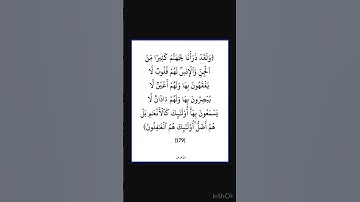 ﴿وَلَقَدْ ذَرَأْنَا لِجَهَنَّمَ كَثِيرًا مِّنَ
ٱلْجِنِّ وَٱلْإِنسِ لَهُمْ قُلُوبٌ لَّا
يَفْقَهُونَ بِهَا وَلَهُمْ أَعْيُنٌ لَّا
يُبْصِرُونَ بِهَا وَلَهُمْ ءَاذَانٌ لَّا
يَسْمَعُونَ بِهَا أُو۟لَٰٓئِكَ كَٱلْأَنْعَٰمِ بَلْ
هُمْ أَضَلُّ أُو۟لَٰٓئِكَ هُمُ ٱلْغَٰفِلُونَ﴾
(179)
InShOt